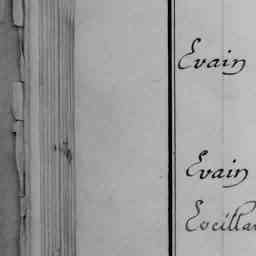 Evain
Evain
Eveillar